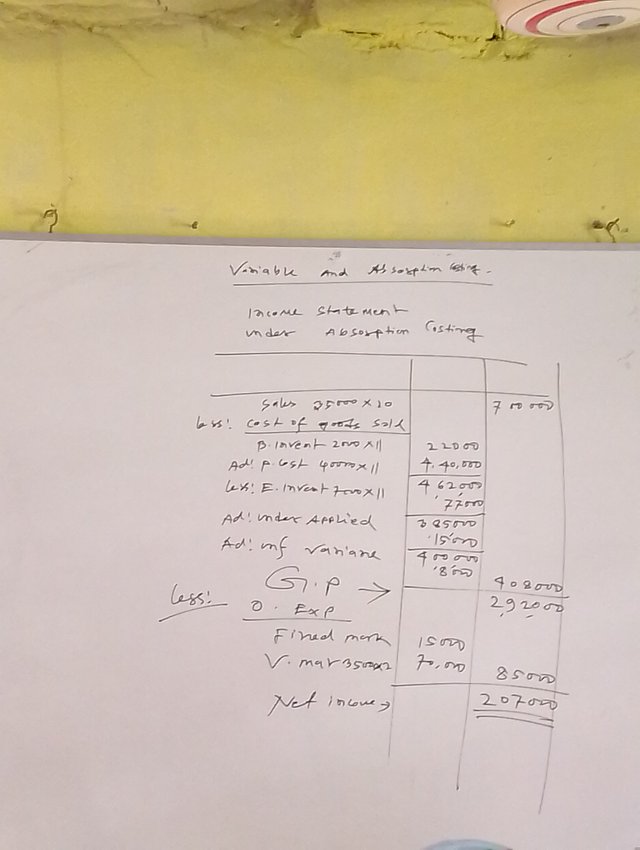 Variable And Absorption Costing.
Income Statement
under Absorption Costing
Sales 35000 x 20 700000
less: Cost of goods Sold
B. Invent 2000 x 11 22000
Ad: P. Cost 40000 x 11 4,40,000
less: E. Invent 7000 x 11 462,000
77000
Ad: under Applied 385000
15,000
Ad: unf variane 400000
8,000 408000
G.P → 292000
less: O. Exp
Fixed mark 15000
V. mar 35000x2 70,000 85000
Net income → 207000